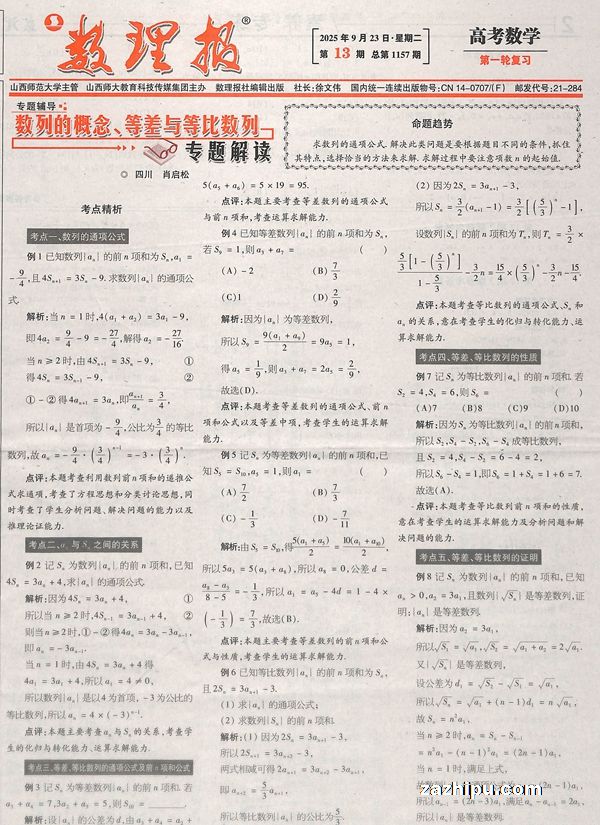 数理报®
2025年9月23日·星期二
第13期 总第1157期
高考数学
第一轮复习
山西师范大学主管 山西师大教育科技传媒集团主办 数理报社编辑出版 社长:徐文伟 国内统一连续出版物号:CN 14-0707/(F) 邮发代号:21-284
专题辅导
数列的概念、等差与等比数列
专题解读
◎ 四川 肖启松
命题趋势
求数列的通项公式.解决此类问题是要根据题目不同的条件,抓住
其特点,选择恰当的方法来求解.求解过程中要注意项数n的起始值.
考点精析
考点一、数列的通项公式
例1 已知数列{aₙ}的前n项和为Sₙ,a₁ =
-9/4,且4Sₙ₊₁ = 3Sₙ - 9.求数列{aₙ}的通项公
式.
解析:当n = 1时,4(a₁ + a₂) = 3a₁ - 9,
即4a₂ = 9/4 - 9 = -27/4,解得a₂ = -27/16.
当n ≥ 2时,由4Sₙ₊₁ = 3Sₙ - 9, ①
得4Sₙ = 3Sₙ₋₁ - 9, ②
① - ②得4aₙ₊₁ = 3aₙ,即aₙ₊₁/aₙ = 3/4,
所以{aₙ}是首项为 -9/4,公比为3/4的等比
数列,故aₙ = -9/4·(3/4)ⁿ⁻¹ = -3·(3/4)ⁿ.
点评:本题考查利用数列前n项和的递推公
式求通项,考查了方程思想和分类讨论思想,同
时考查了学生分析问题、解决问题的能力以及
推理论证能力.
考点二、aₙ与Sₙ之间的关系
例2 记Sₙ为数列{aₙ}的前n项和,已知
4Sₙ = 3aₙ + 4,求{aₙ}的通项公式.
解析:因为4Sₙ = 3aₙ + 4, ①
所以当n ≥ 2时,4Sₙ₋₁ = 3aₙ₋₁ + 4, ②
则当n ≥ 2时,① - ②得4aₙ = 3aₙ - 3aₙ₋₁,
即aₙ = -3aₙ₋₁.
当n = 1时,由4Sₙ = 3aₙ + 4得
4a₁ = 3a₁ + 4,所以a₁ = 4 ≠ 0,
所以数列{aₙ}是以4为首项,-3为公比的
等比数列,所以aₙ = 4 × (-3)ⁿ⁻¹.
点评:本题主要考查aₙ与Sₙ的关系,考查学
生的化归与转化能力、运算求解能力.
考点三、等差、等比数列的通项公式及前n项和公式
例3 记Sₙ为等差数列{aₙ}的前n项和.若
a₃ + a₄ = 7,3a₂ + a₅ = 5,则S₁₀ = ______.
解析:设{aₙ}的公差为d,由a₃ + a₄ = a₂ +
5(a₅ + a₆) = 5 × 19 = 95.
点评:本题主要考查等差数列的通项公式
与前n项和,考查运算求解能力.
例4 已知等差数列{aₙ}的前n项和为Sₙ,
若S₉ = 1,则a₃ + a₇ = ( )
(A) -2 (B) 7/3
(C)1 (D) 2/9
解析:因为{aₙ}为等差数列,
所以S₉ = 9(a₁ + a₉)/2 = 9a₅ = 1,
得a₅ = 1/9,则a₃ + a₇ = 2a₅ = 2/9,
故选(D).
点评:本题考查等差数列的通项公式、前n
项和公式以及等差中项,考查学生的运算求解
能力.
例5 记Sₙ为等差数列{aₙ}的前n项和,已
知S₅ = S₁₀,a₅ = 1,则a₁ = ( )
(A) 7/2 (B) 7/3
(C) -1/3 (D) -7/11
解析:由S₅ = S₁₀,得5(a₁ + a₅)/2 = 10(a₁ + a₁₀)/2,
所以5a₃ = 5(a₅ + a₆),所以a₈ = 0,公差d =
(a₈ - a₅)/(8 - 5) = -1/3,所以a₁ = a₅ - 4d = 1 - 4 ×
(-1/3) = 7/3,故选(B).
点评:本题主要考查等差数列的前n项和公
式与性质,考查学生的运算求解能力.
例6 已知等比数列{aₙ}的前n项和为Sₙ,
且2Sₙ = 3aₙ₊₁ - 3.
(1) 求{aₙ}的通项公式;
(2) 求数列{Sₙ}的前n项和.
解析:(1) 因为2Sₙ = 3aₙ₊₁ - 3,
所以2Sₙ₊₁ = 3aₙ₊₂ - 3,
两式相减可得2aₙ₊₁ = 3aₙ₊₂ - 3aₙ₊₁,
即aₙ₊₂ = 5/3 aₙ₊₁,
所以等比数列{aₙ}的公比为5/3.
(2) 因为2Sₙ = 3aₙ₊₁ - 3,
所以Sₙ = 3/2(aₙ₊₁ - 1) = 3/2[(5/3)ⁿ - 1],
设数列{Sₙ}的前n项和为Tₙ,则Tₙ = 3/2 ×
5/3[1 - (5/3)ⁿ]/(1 - 5/3) - 3/2n = 15/4 × (5/3)ⁿ - 3/2n - 15/4.
点评:本题考查等比数列的通项公式、Sₙ和
aₙ的关系,意在考查学生的化归与转化能力、运
算求解能力.
考点四、等差、等比数列的性质
例7 记Sₙ为等比数列{aₙ}的前n项和.若
S₂ = 4,S₄ = 6,则S₆ = ( )
(A)7 (B)8 (C)9 (D)10
解析:因为Sₙ为等比数列{aₙ}的前n项和,
所以S₂,S₄ - S₂,S₆ - S₄成等比数列,
且S₂ = 4,S₄ - S₂ = 6 - 4 = 2,
所以S₆ - S₄ = 1,即S₆ = 1 + S₄ = 1 + 6 = 7.
故选(A).
点评:本题考查等比数列前n项和的性质,
意在考查学生的运算求解能力及分析问题和解
决问题的能力.
考点五、等差、等比数列的证明
例8 记Sₙ为数列{aₙ}的前n项和,已知
aₙ > 0,a₂ = 3a₁,且数列{√Sₙ}是等差数列,证
明:{aₙ}是等差数列.
解析:因为a₂ = 3a₁,
所以√S₁ = √a₁,√S₂ = √(a₁ + a₂) = 2√a₁.
又{√Sₙ}是等差数列,
设公差为d₁ = √S₂ - √S₁ = √a₁,
所以√Sₙ = √a₁ + (n - 1)d₁ = n√a₁,
故Sₙ = n²a₁,
当n ≥ 2时,aₙ = Sₙ - Sₙ₋₁
= n²a₁ - (n - 1)²a₁ = (2n - 1)a₁,
当n = 1时,满足上式,
(2n - 1)a₁,
所以aₙ₋₁ = (2n - 3)a₁,
zazhipu.com